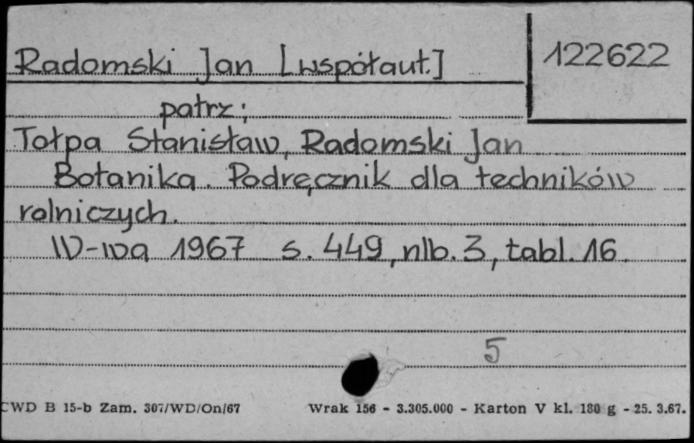 Radomski Jan [współaut.]
122622
patrz:
Tołpa Stanisław, Radomski Jan
Botanika. Podręcznik dla techników
rolniczych.
W-wa 1967 s. 449, nlb. 3, tabl. 16.
5
CWD B 15-b Zam. 307/WD/On/67 Wrak 156 - 3.305.000 - Karton V kl. 180 g - 25. 3.67.